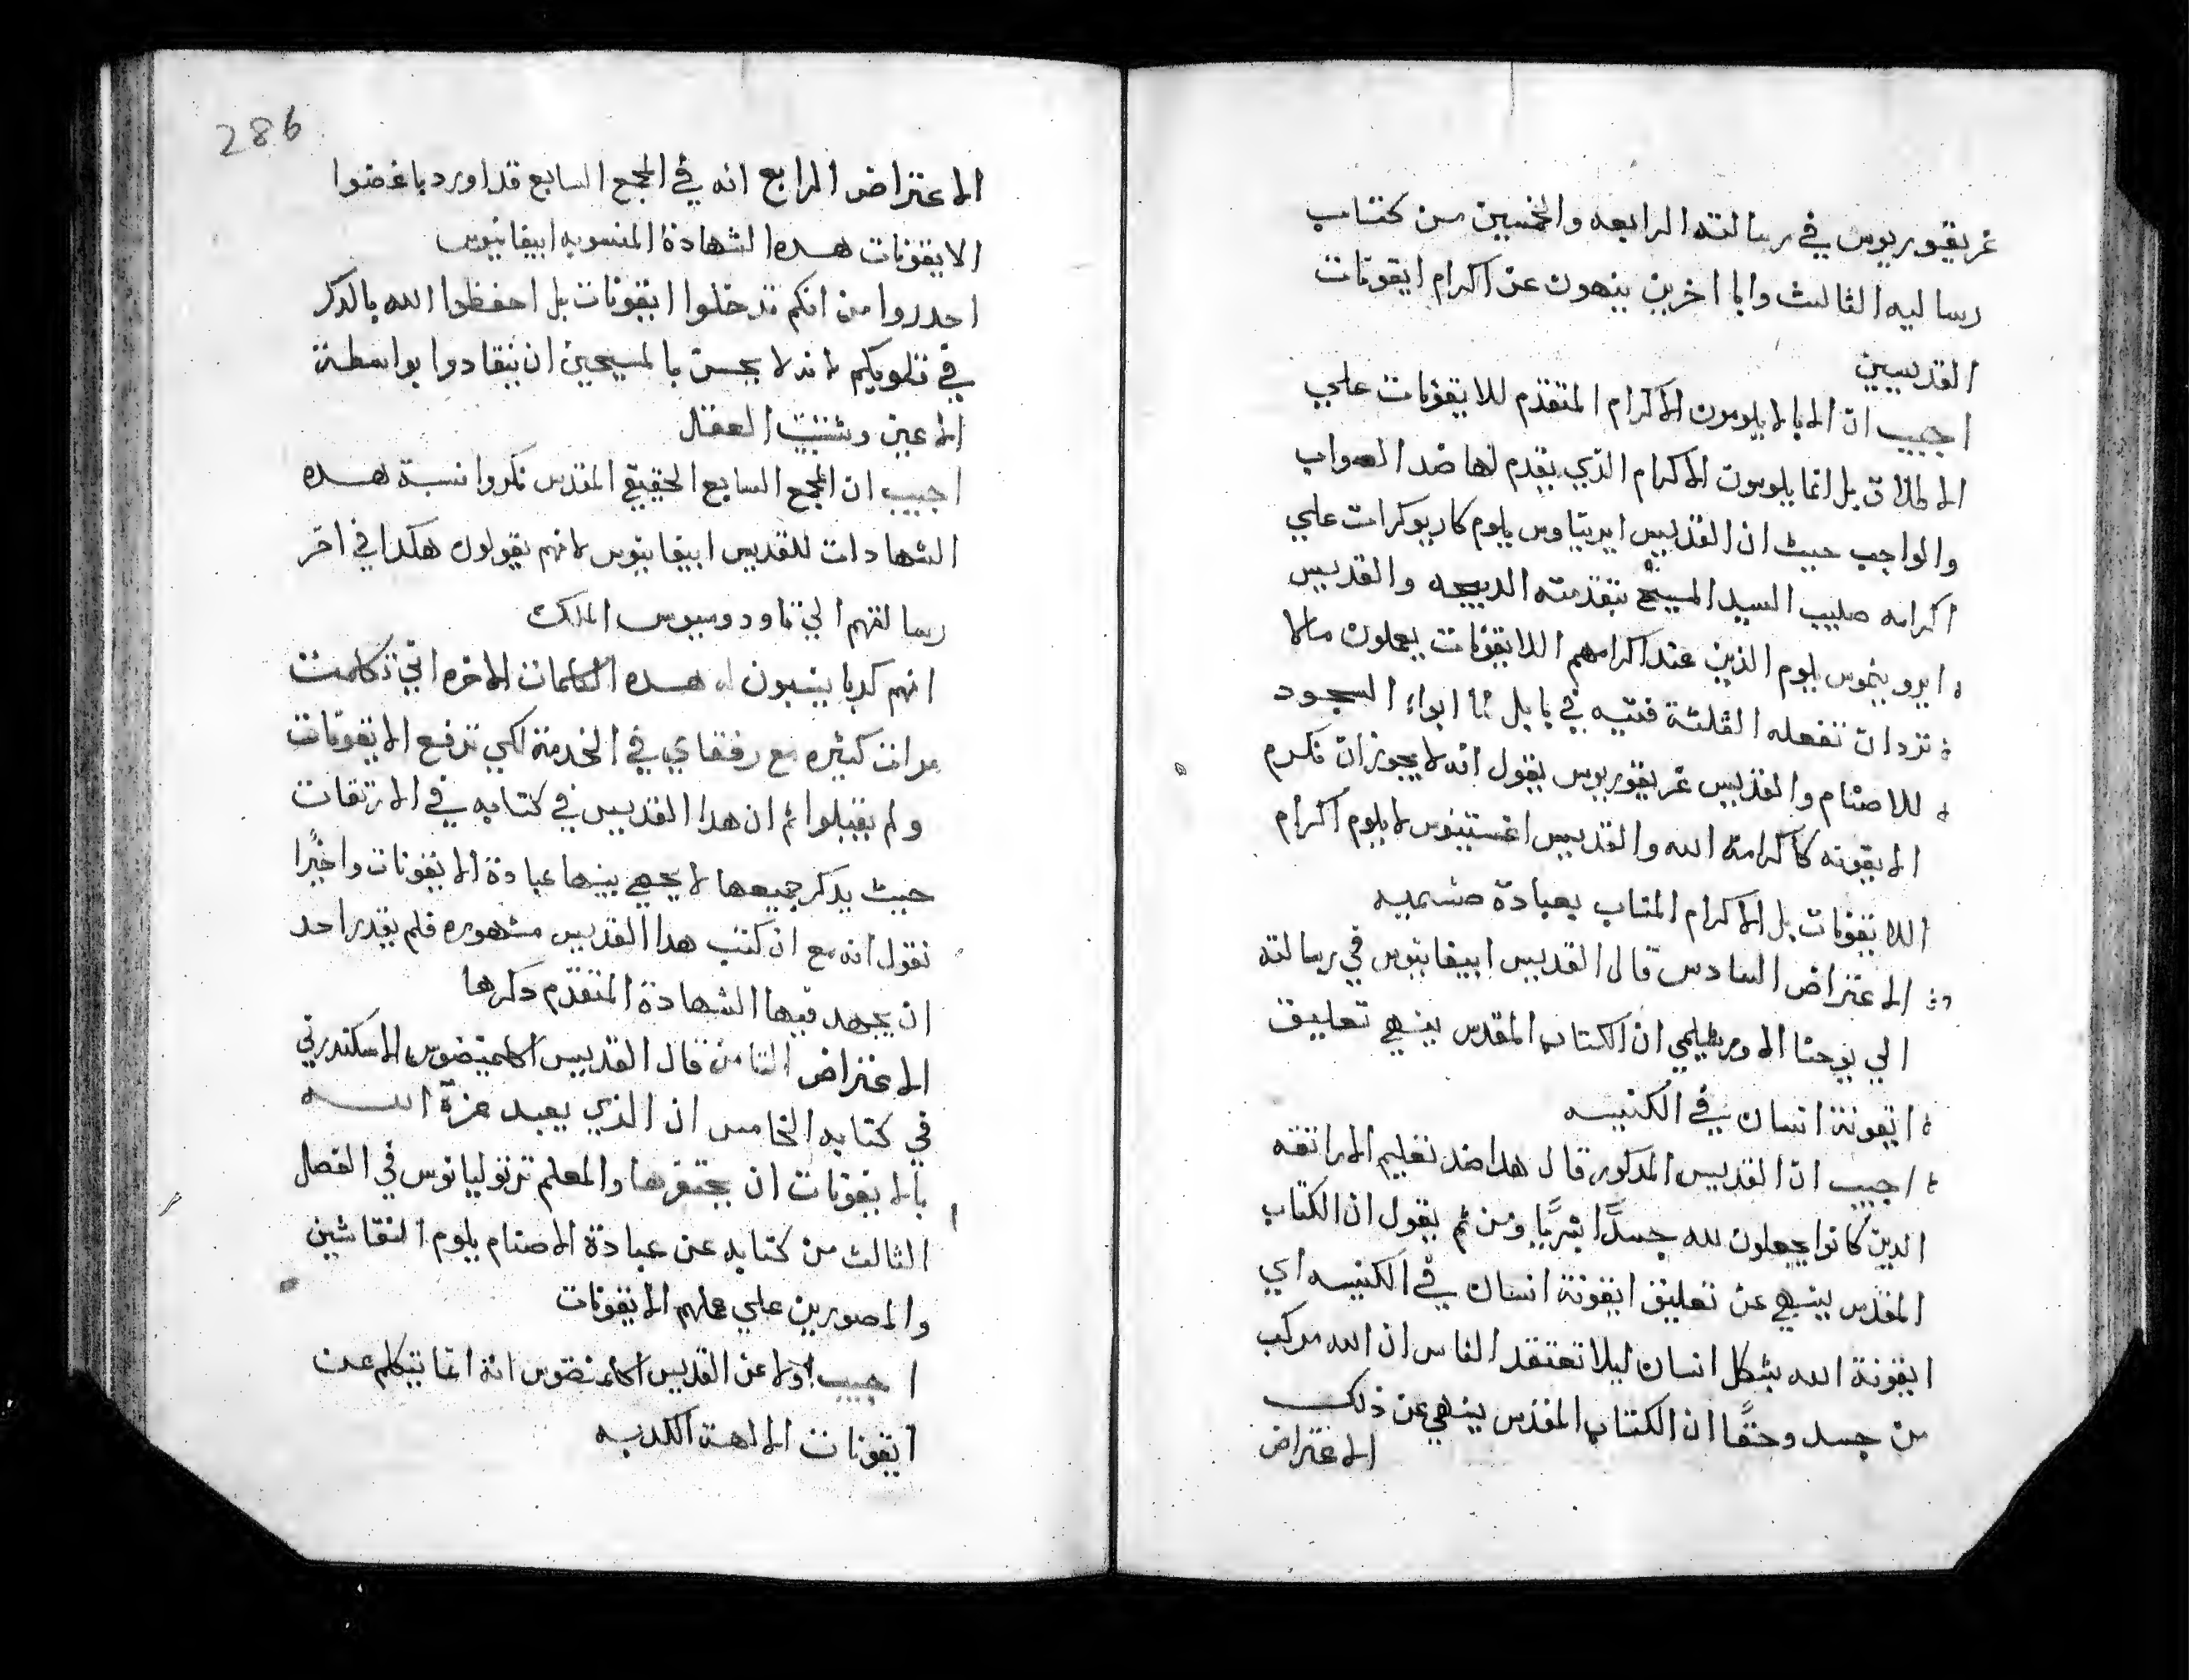 غريقوريوس في رسالته الرابعه والخمسين من كتاب
رساليه الثالث وابا اخرين ينهون عن اكرام ايقونات
القديسين
اجيب ان الابا لا يلومون الاكرام المتقدم للايقونات علي
الاطلاق بل انما يلومون الاكرام الذي يقدم لها ضد الصواب
والواجب حيث ان القديس ايريناوس يلوم كاربوكرات علي
اكرامه صليب السيد المسيح بتقدمته الدبيحه والقديس
ايرونيموس يلوم الذين عند اكرامهم اللايقونات يعملون مالا
ترد ان تفعله الثلثة فتيه في بابل لما ابواء السجود
للاصنام والقديس غريقوريوس يقول انه لا يجوز ان نكرم
الايقونه كاكرامة الله والقديس اغستينوس لا يلوم اكرام
اللايقونات بل الاكرام المتاب بعبادة صنميه
الاعتراض السادس قال القديس ابيفانيوس في رسالته
الي يوحنا الاورشليمي ان الكتاب المقدس ينهي تعليق
ايقونة انسان في الكنيسه
اجيب ان القديس المدكور قال هدا ضد تعليم الاراتقه
الدين كانوا يجعلون لله جسدًا بشريًا ومن ثم يقول ان الكتاب
المقدس ينهي عن تعليق ايقونة انسان في الكنيسه اي
ايقونة الله بشكل انسان ليلا تعتقد الناس ان الله مركب
من جسد وحقًا ان الكتاب المقدس ينهي عن ذلك
الاعتراض
286
الاعتراض الرابع انه في المجمع السابع قد اورد باغضوا
الايقونات هده الشهادة المنسوبه ابيفانيوس
احدروا من انكم تدخلوا ايقونات بل احفظوا الله بالدكر
في قلوبكم لانه لا يحسن بالمسيحين ان ينقادوا بواسطة
الاعين وتشتيت العقل
اجيب ان المجمع السابع الحقيقي المقدس نكروا نسبة هده
الشهادات للقديس ابيفانيوس لانهم يقولون هكدا في اخر
رسالتهم الي تاودوسيوس الملك
انهم كدبا ينسبون له هده الكلمات الاخره اني تكلمت
مرات كثيره مع رفقاي في الخدمة لكي ترفع الايقونات
ولم يقبلوا ثم ان هدا القديس في كتابه في الارتقات
حيث يدكر جميعها لا يحصي بينها عبادة الايقونات واخيًرا
نقول انه مع ان كتب هدا القديس مشهوره فلم يقدر احد
ان يجد فيها الشهادة المتقدم دكرها
الاعتراض الثامن قال القديس اكليمنضوس الاسكندري
في كتابه الخامس ان الذي يعبد عزة الله
بالايقونات ان يحتقرها والمعلم ترتوليانوس في الفصل
الثالث من كتابه عن عبادة الاصنام يلوم النقاشين
والمصورين علي عملهم الايقونات
اجيب اولا عن القديس اكليمنضوس انه انما يتكلم عن
ايقونات الالهة الكدبه